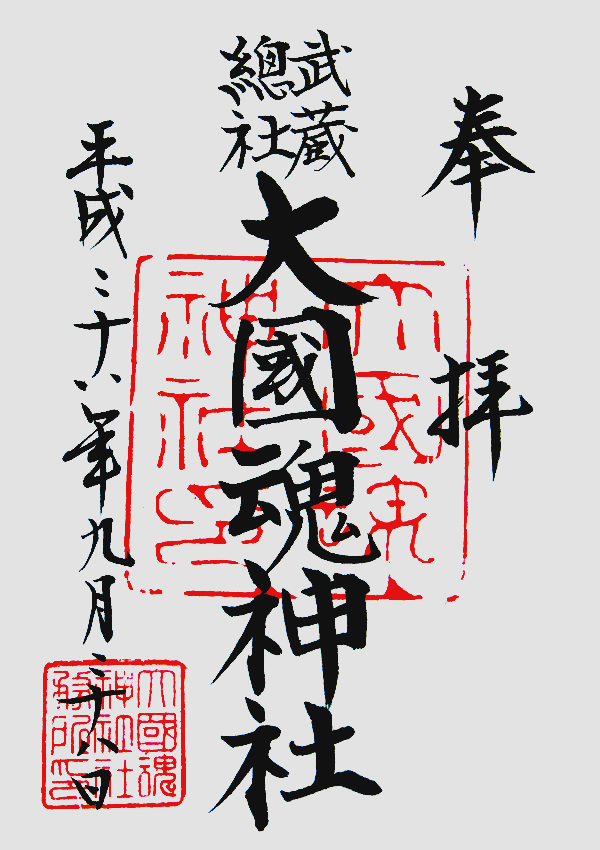 奉拝
武蔵
總社
大國魂神社
平成二十八年九月二十八日
大國魂
神社印
大國魂
神社社
務所印